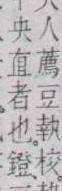 人薦豆執校
中央直者也鐙